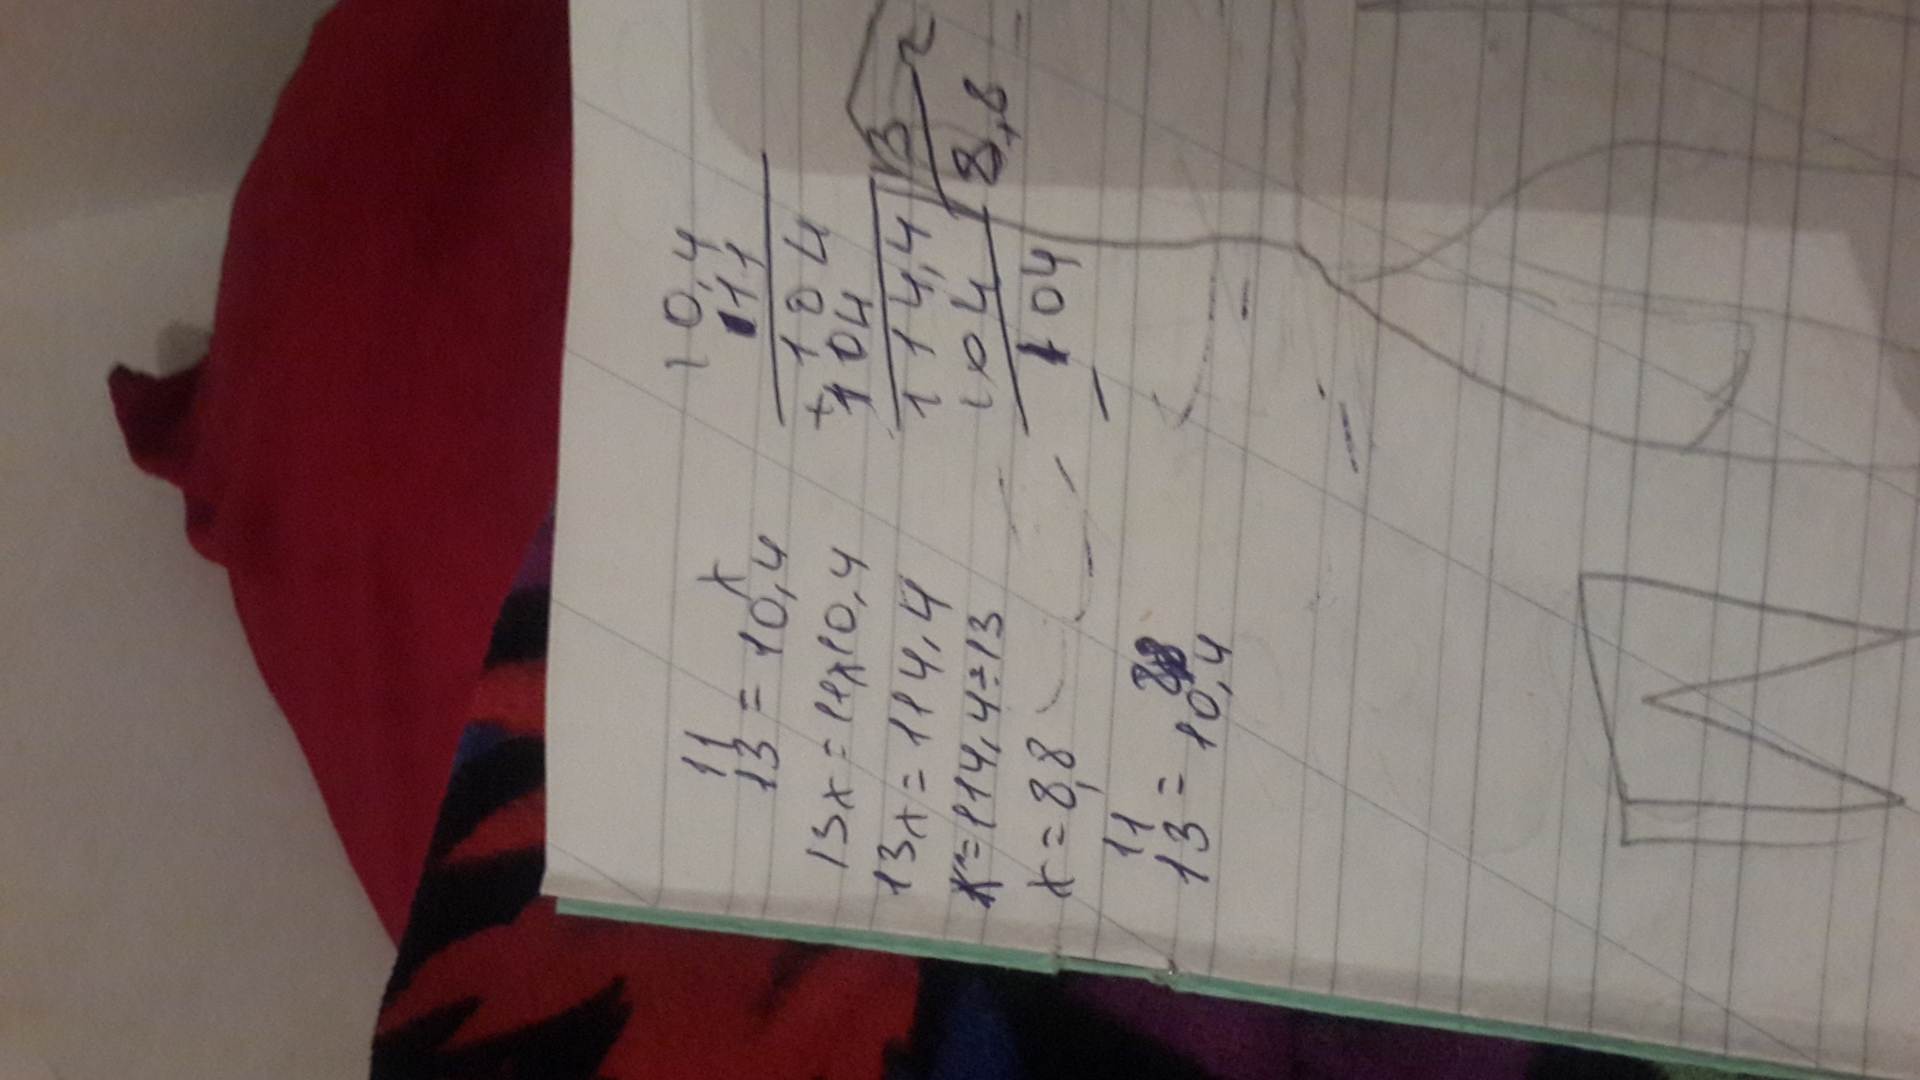 11 x
13 = 10,4
13x = 11x10,4
13x = 114,4
x = 114,4÷13
x = 8,8
11 88
13 = 10,4
10,4
11
104
+ 104
114,4 13
104 8,8
104